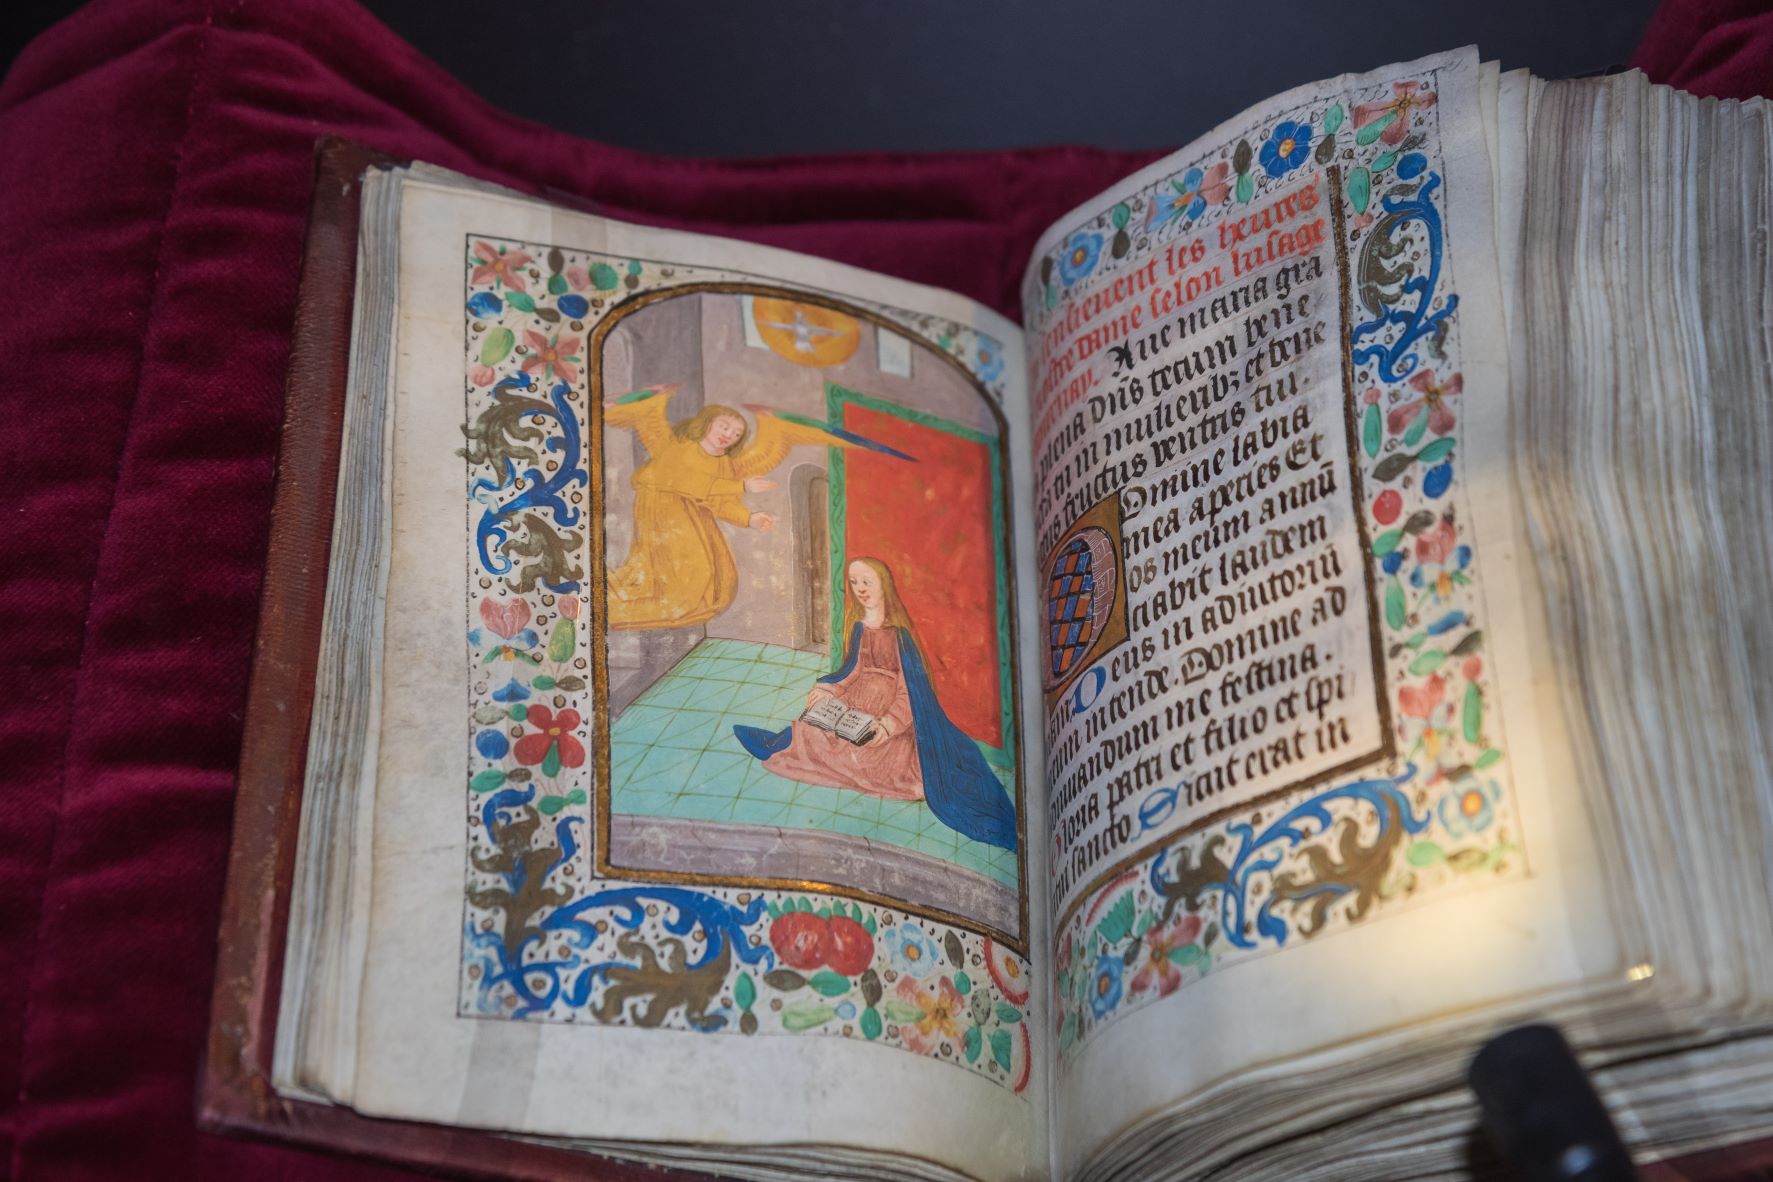 les heures
nostre dame selon lusage
Aue maria gra
plena dn̄s tecum bene
tu in mulierib; et bene
fructus ventris tui.
Domine labia
mea aperies Et
os meum annū
ciabit laudem
Deus in adiutoriū
intende. Domine ad
iuuandum me festina.
Gloria patri et filio et spi
sancto Sicut erat in